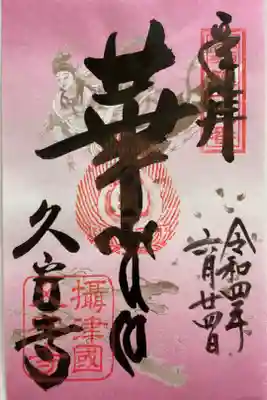 奉拝
華
久安寺
令和四年
六月廿四日
攝津國